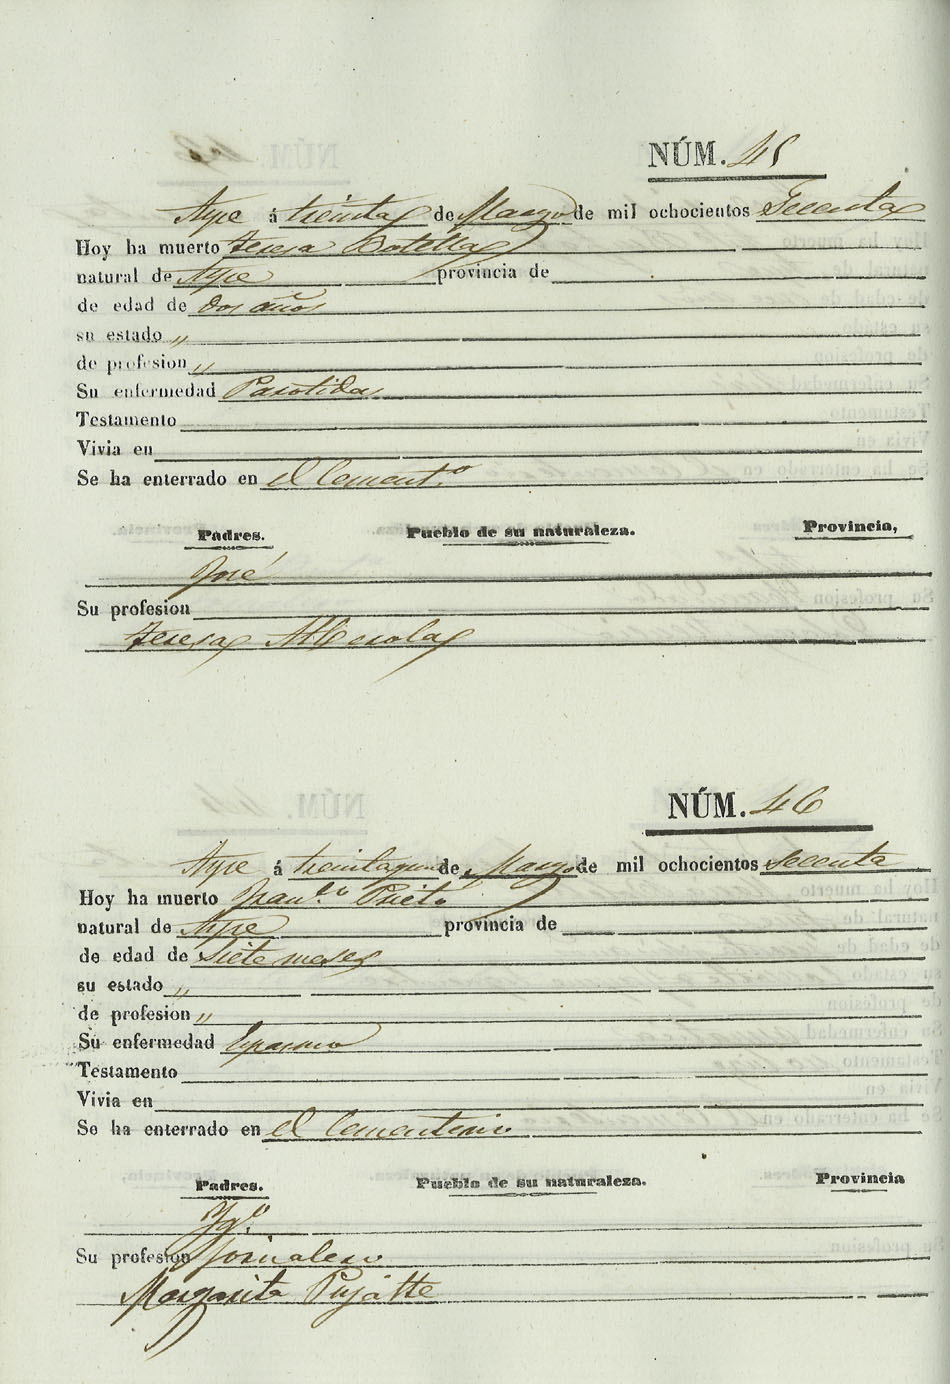 NÚM. 45
Aspe á treinta de Marzo de mil ochocientos Secenta
Hoy ha muerto Teresa Botella
natural de Aspe provincia de
de edad de Dos años
su estado "
de profesion "
Su enfermedad Parotidas
Testamento
Vivia en
Se ha enterrado en el Cement.º
Padres. Pueblo de su naturaleza. Provincia,
José
Su profesion
Teresa
NÚM. 46
Aspe á treinta y uno de Marzo de mil ochocientos Secenta
Hoy ha muerto Fran.co Prieto
natural de Aspe provincia de
de edad de Siete meses
su estado "
de profesion "
Su enfermedad Espasmo
Testamento
Vivia en
Se ha enterrado en el Cementerio
Padres. Pueblo de su naturaleza. Provincia
Yg.º
Su profesion Jornalero
Margarita Pujalte